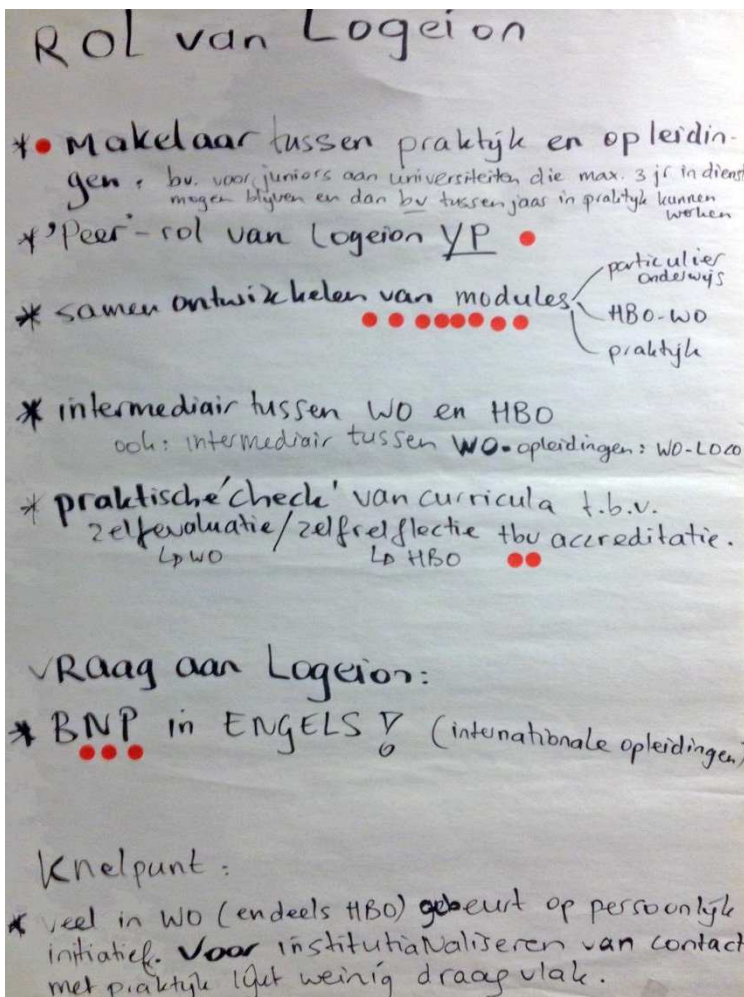 ROL van Logeion
* Makelaar tussen praktijk en opleidin-
gen. bv. voor juniors aan universiteiten die max. 3 jr in dienst
mogen blijven en dan bv tussenjaar in praktijk kunnen
werken
* 'Peer'-rol van Logeion YP
* samen ontwikkelen van modules
particulier
onderwijs
HBO-WO
praktijk
* intermediair tussen WO en HBO
ook: intermediair tussen WO-opleidingen: WO-LOCO
* praktische 'check' van curricula t.b.v.
zelfevaluatie/zelfreflectie tbv accreditatie.
↳ WO ↳ HBO
VRaag aan Logeion:
* BNP in ENGELS! (internationale opleidingen)
Knelpunt:
* veel in WO (en deels HBO) gebeurt op persoonlijk
initiatief. Voor institutionaliseren van contact
met praktijk lijkt weinig draagvlak.